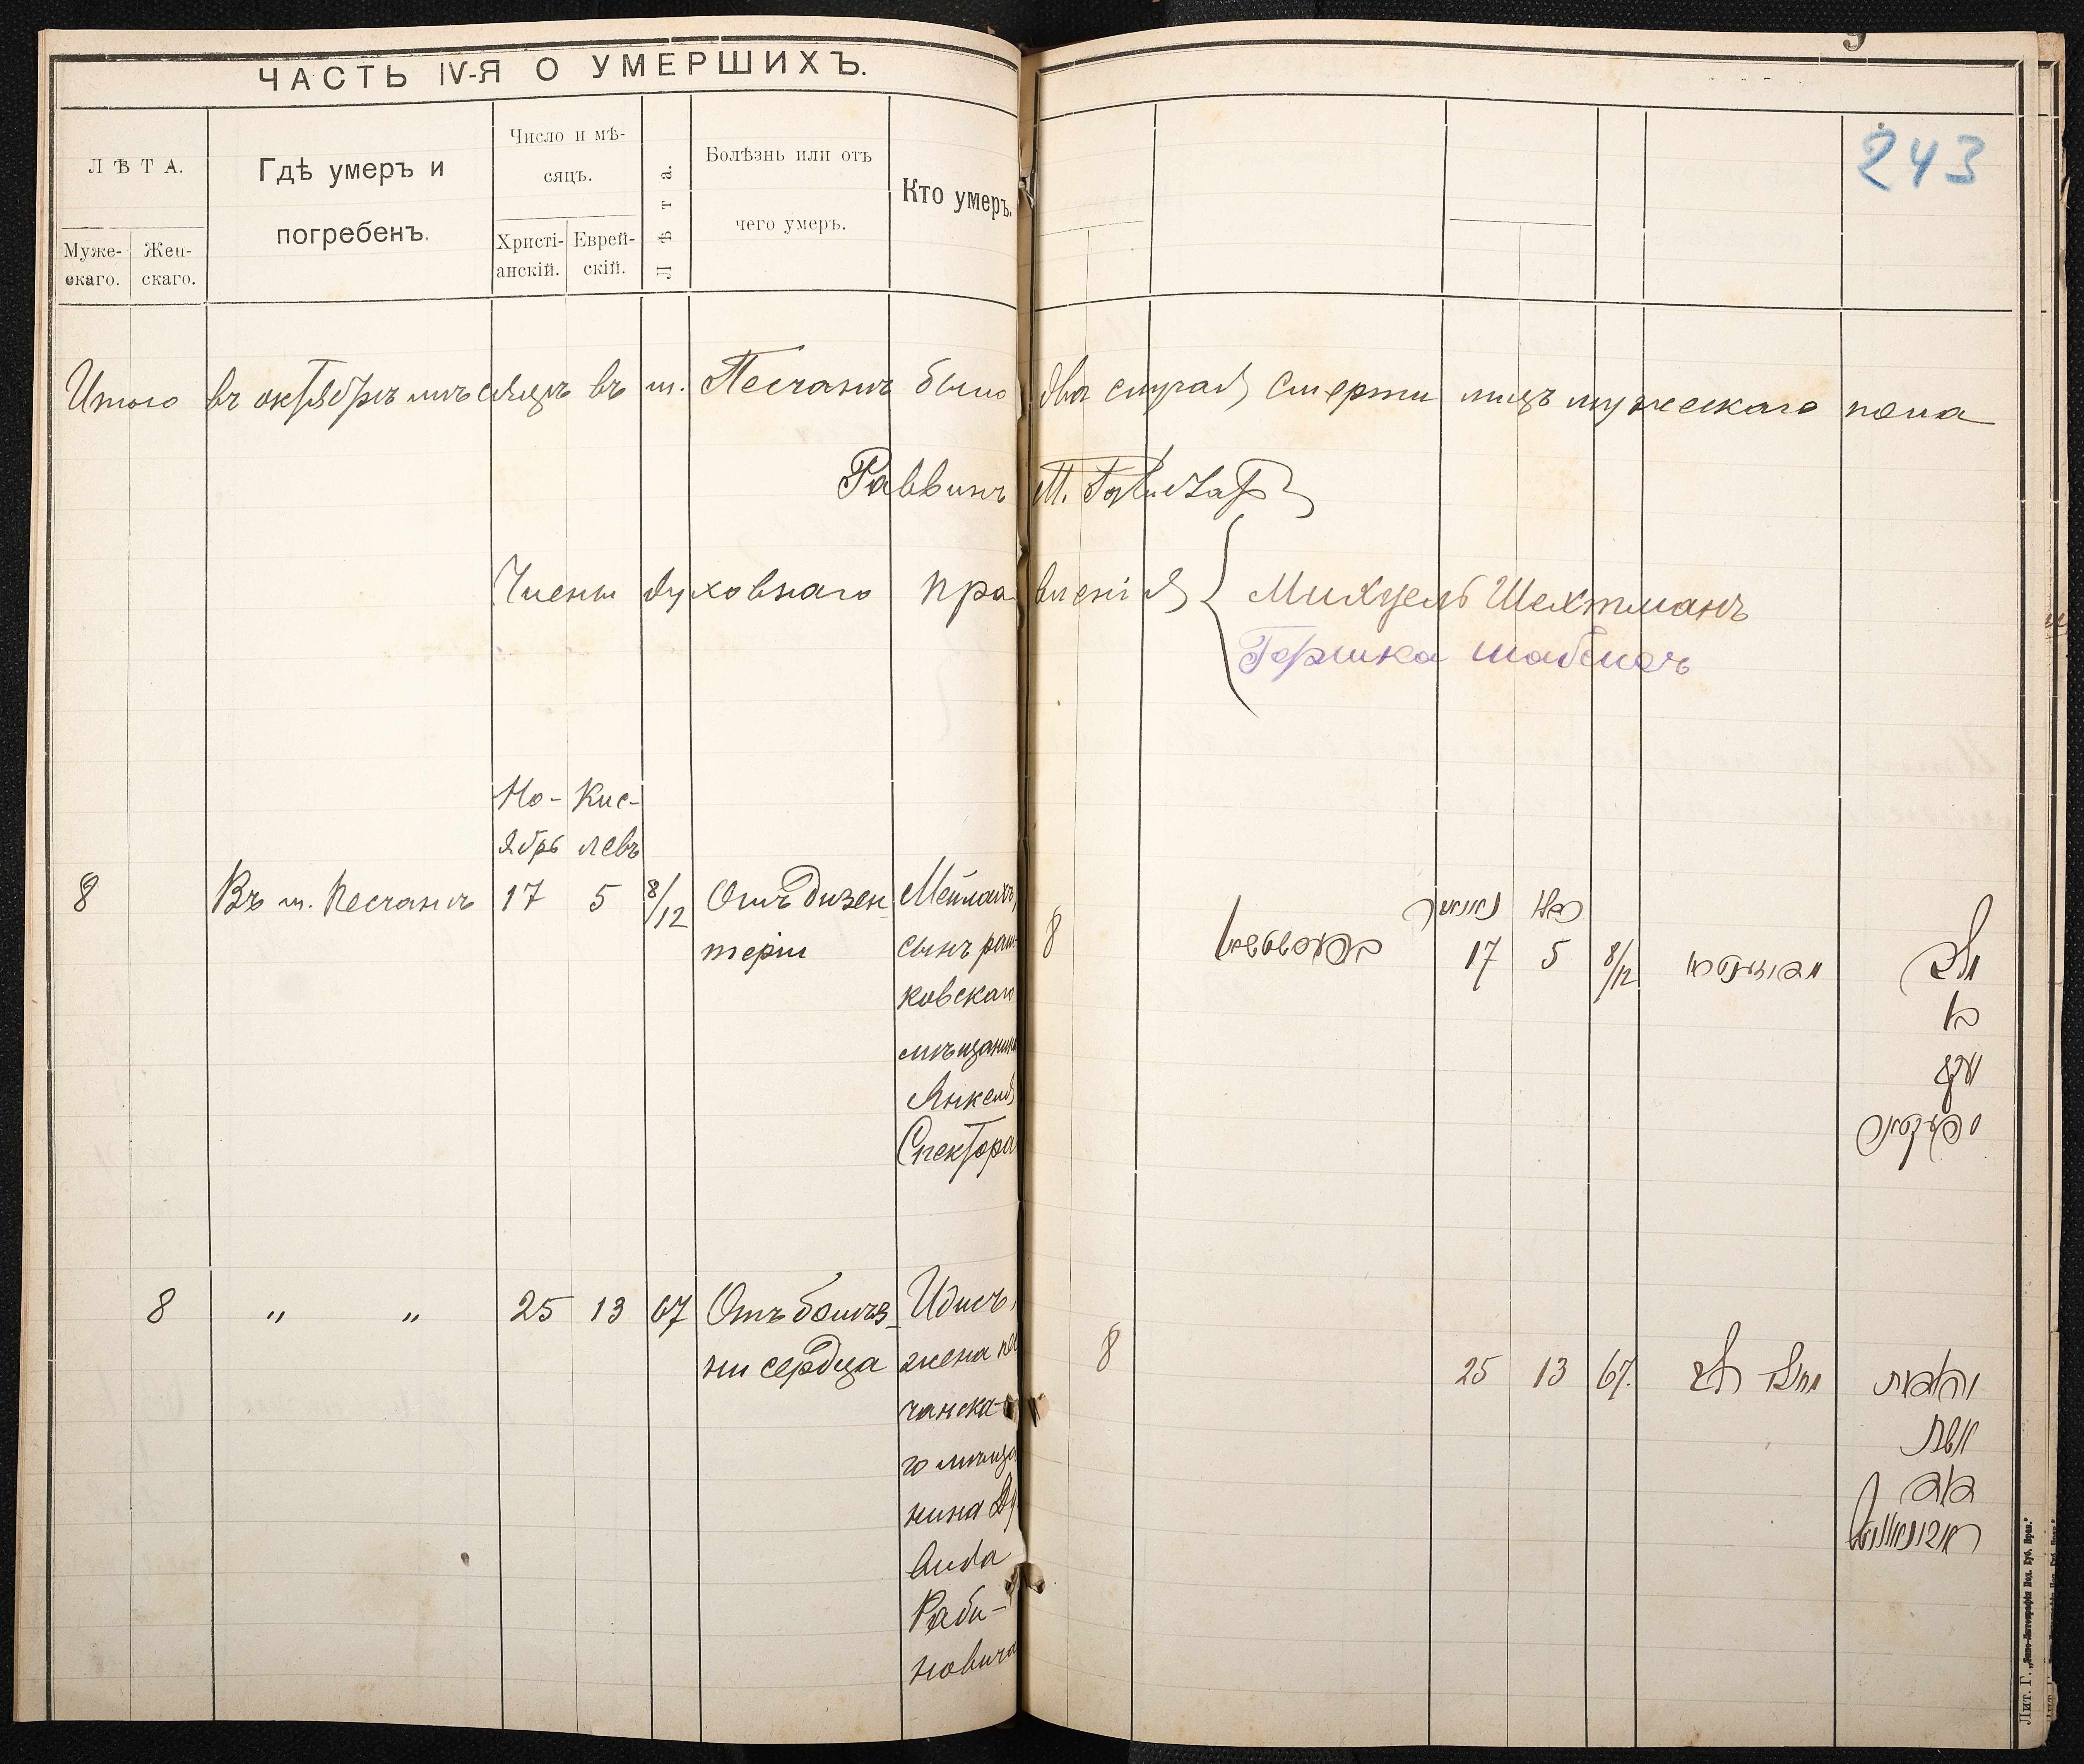 ЧАСТЬ IV-Я О УМЕРШИХЪ.
ЛѢТА.
Муже-
скаго.
Жен-
скаго.
Гдѣ умеръ и
погребенъ.
Число и мѣ-
сяцъ.
Христі-
анскій.
Еврей-
скій.
Лѣта.
Болѣзнь или отъ
чего умеръ.
Кто умеръ.
243
Итого въ октябрѣ мѣсяцѣ въ м. Песчанѣ было два случая смерти лицъ мужескаго пола
Раввинъ М.
Члены духовнаго правленія
Михуель Шехтманъ
Гершка
Но-
ябрь
Кис-
левъ
8 Въ м. Песчанѣ 17 5 8/12 Отъ дизен
теріи
Мейлахъ,
сынъ раш-
ковскаго
мѣщанина
Янкеля
Спектора
8 17 5 8/12
בן
יעקב
ספעקטאר
8 „ „ 25 13 67 Отъ болѣз-
ни сердца
Идисъ,
жена пес
чанска-
го мѣща
нина Ду
вида
Раби-
новича
8 25 13 67. לב
אשת
דוד
ראבינאוויטש
Лит. Г.